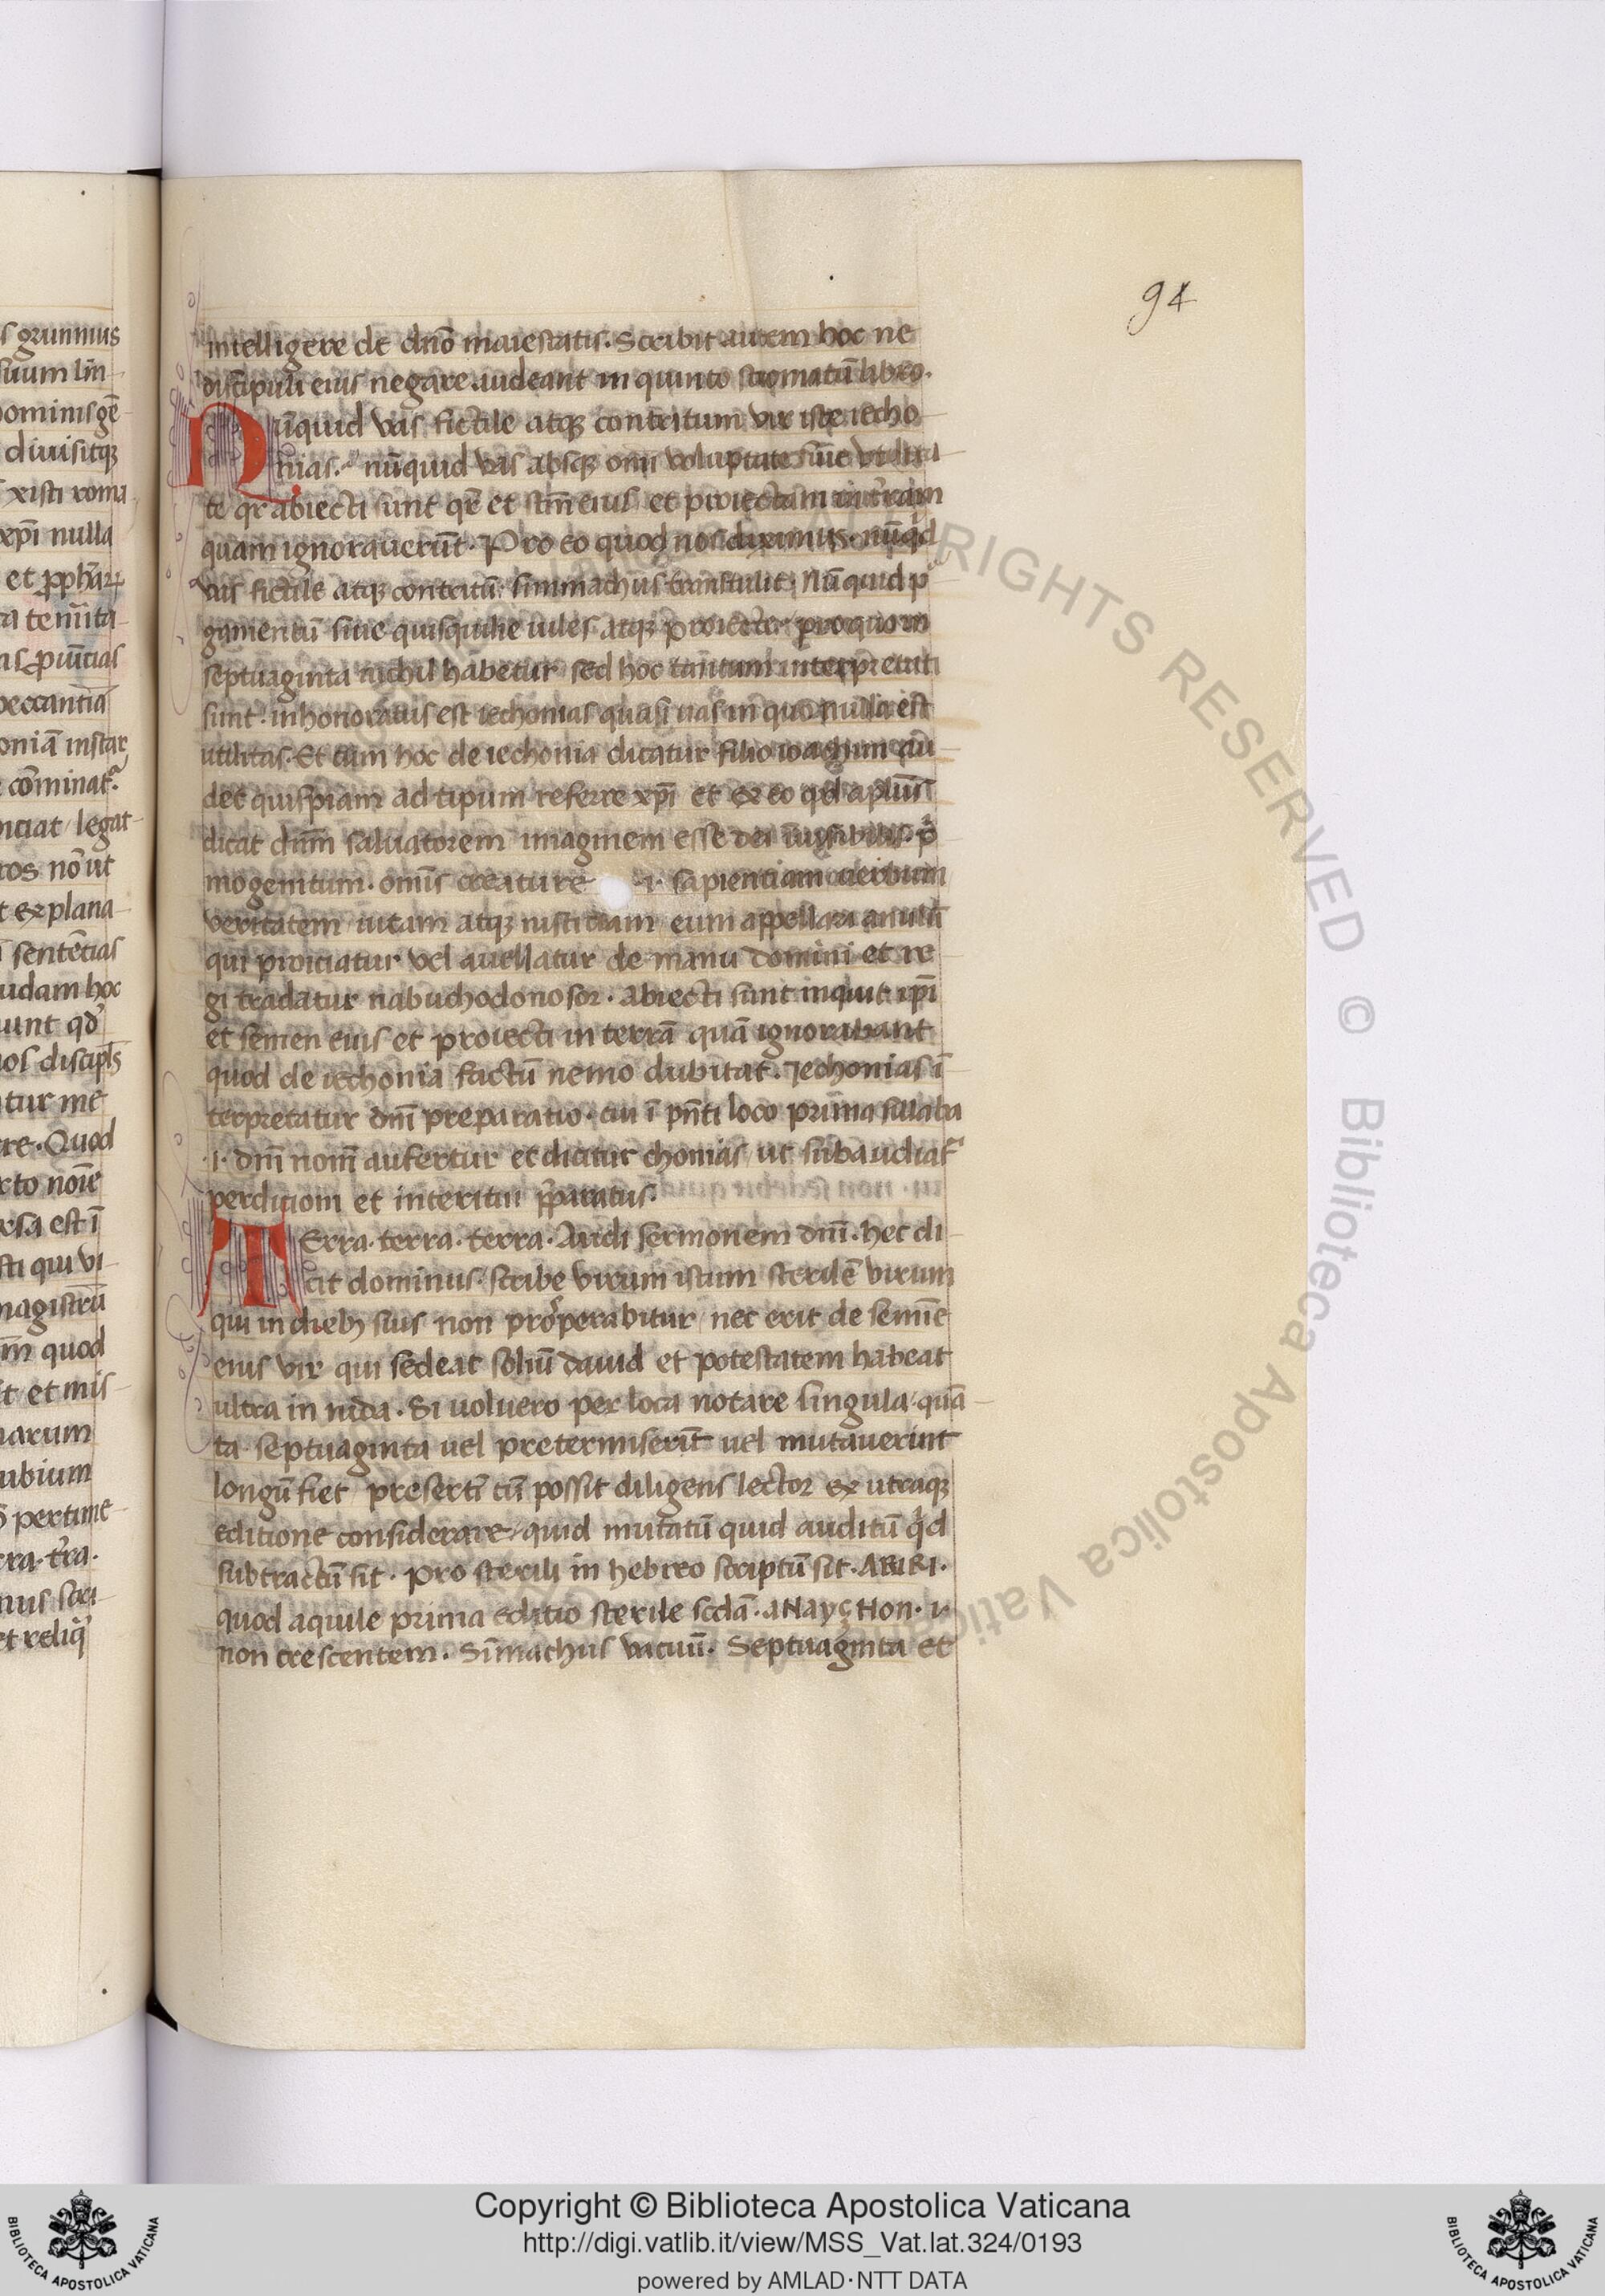 94
intelligere de dnō maiestatis. Scribit autem hoc ne
discipuli eius negare audeant in quinto stromatū libro.
Nūquid vas fictile atqꝫ contritum vir iste iecho
nias. nūquid vas absqꝫ omī voluptate siue vtilita
te qr̄ abiecti sunt qr̄ et sm̄ eius et proiectam
quam ignorauerūt. Pro eo quod nos diximus. nūqͥd
vas fictile atqꝫ contritū. simmachus transtulit. Nūquid p
gamentū siue quisquilie uiles atqꝫ proiecte. pro quo in
septuaginta nichil habetur sed hoc tantum interpretati
sunt. inhonoratus est iechonias quasi uas in quo nulla est
utilitas. Et cum hoc de iechonia dicatur filio ioachim au
det quispiam ad tipum referre xp̄i et ex eo qd̄ aplūs
dicat dnm̄ saluatorem imaginem esse dei inuisibilis. pͥ
mogenitum. omīs creature .i. sapientiam uerbum
veritatem uitam atqꝫ iusticiam eum appellari anulū
qui proiciatur vel auellatur de manu domini et re
gi tradatur nabuchodonosor. abiecti sunt inquit ip̄i
et semen eius et proiecti in terrā quā ignorabant
quod de iechonia factū nemo dubitat. Jechonias ī
terpretatur dnī preparatio. cui ī pn̄ti loco prima sillaba
.i. dnī nom̄ aufertur et dicitur chonias ut subaudiatͬ
perditiom et interitui p̄paratus.
TErra. terra. terra. Audi sermonem dnī. hec di
cit dominus. scribe virum istum sterilē virum
qui in diebꝫ suis non prosperabitur nec erit de semīe
eius vir qui sedeat soliū dauid et potestatem habeat
ultra in iuda. Si uoluero per loca notare singula quā
ta septuaginta uel pretermiserīt uel mutauerint
longū fiet presertī cū possit diligens lector ex utraqꝫ
editione considerare quid mutatū quid auditū qͥd
subtractū sit. pro sterili in hebreo scriptū sit. ARIRI.
quod aquile prima editio sterile scdā. aNayçHon. i.
non crescentem. Sīmachus vacuū. Septuaginta et
RIGHTS RESERVED © Biblioteca Apostolica Vaticana
Copyright © Biblioteca Apostolica Vaticana
http://digi.vatlib.it/view/MSS_Vat.lat.324/0193
powered by AMLAD·NTT DATA
BIBLIOTECA APOSTOLICA VATICANA
BIBLIOTECA APOSTOLICA VATICANA